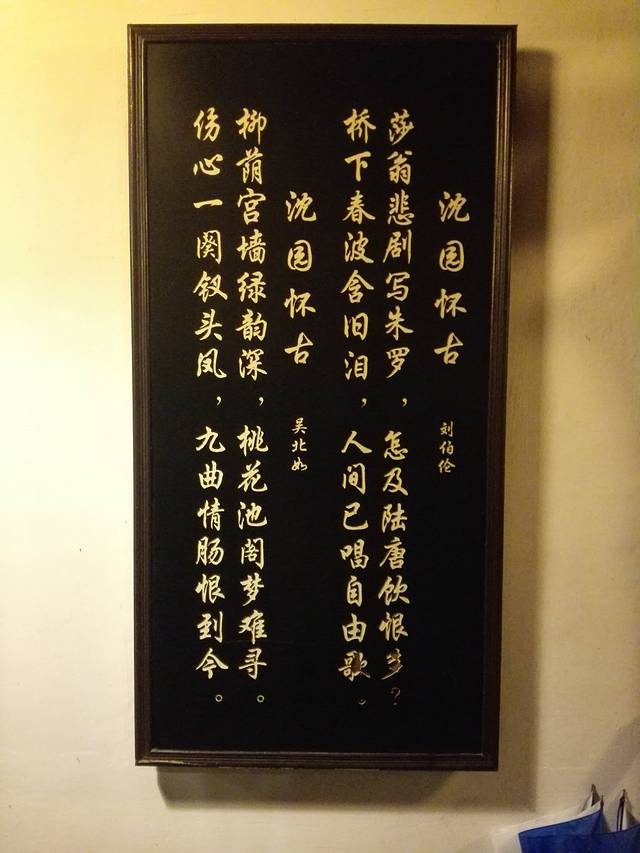 沈园怀古
刘伯伦
莎翁悲剧写朱罗，怎及陆唐饮恨多？
桥下春波含旧泪，人间已唱自由歌。
沈园怀古
吴北如
柳荫宫墙绿韵深，桃花池阁梦难寻。
伤心一阕钗头凤，九曲情肠恨到今。